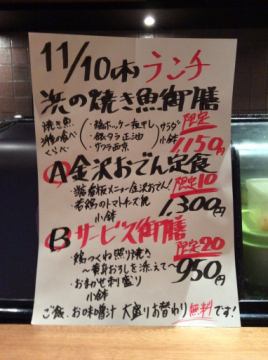 11/10(木)ランチ
浜の焼き魚御膳
焼き魚
食べ
くらべ
・縞ホッケ一夜干し
・銀ダラ正油
・サワラ西京
サラダ
小鉢
限定
1150円
A 金沢おでん定食
・看板メニュー金沢おでん
・若鶏のトマトチーズ焼
・小鉢
限定10
1,300円
B サービス御膳
・鶏つくね照り焼き
〜黄身おろしを添えて〜
・おまかせ刺盛り
・小鉢
限定20
950円
ご飯、お味噌汁 大盛りお替わり無料です!